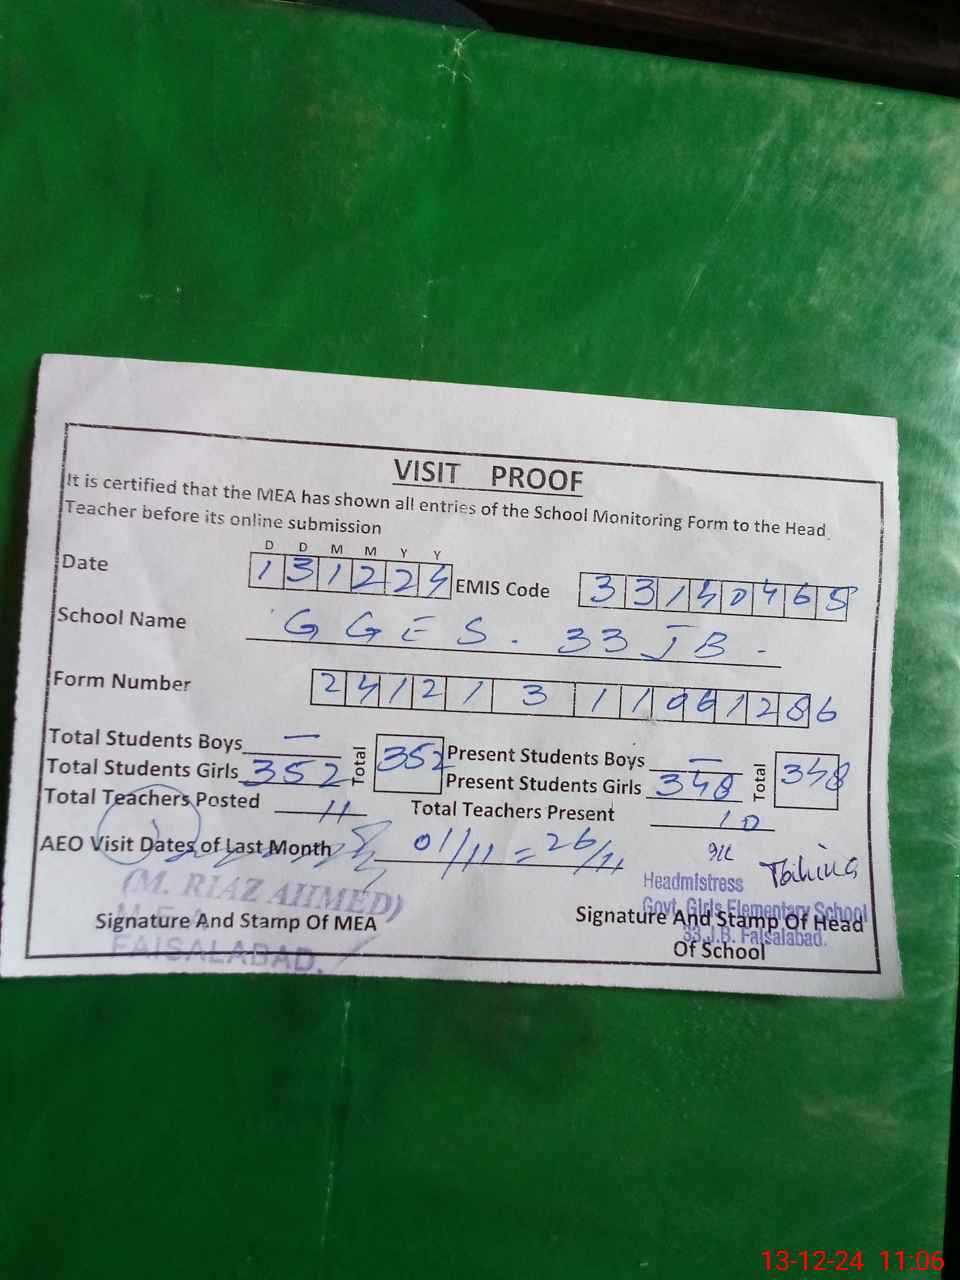 VISIT PROOF
It is certified that the MEA has shown all entries of the School Monitoring Form to the Head
Teacher before its online submission
D D M M Y Y
Date 131224 EMIS Code 33140465
School Name GGES. 33 JB -
Form Number 2412131106 1286
Total Students Boys — Total 352 Present Students Boys — Total 348
Total Students Girls 352 Present Students Girls 348
Total Teachers Posted 11 Total Teachers Present 10
AEO Visit Dates of Last Month 01/11 = 26/11
(M. RIAZ AHMED)
Headmistress
Govt. Girls Elementary School
33 J.B. Faisalabad.
Signature And Stamp Of MEA
Signature And Stamp Of Head
Of School
FAISALABAD.
13-12-24 11:06